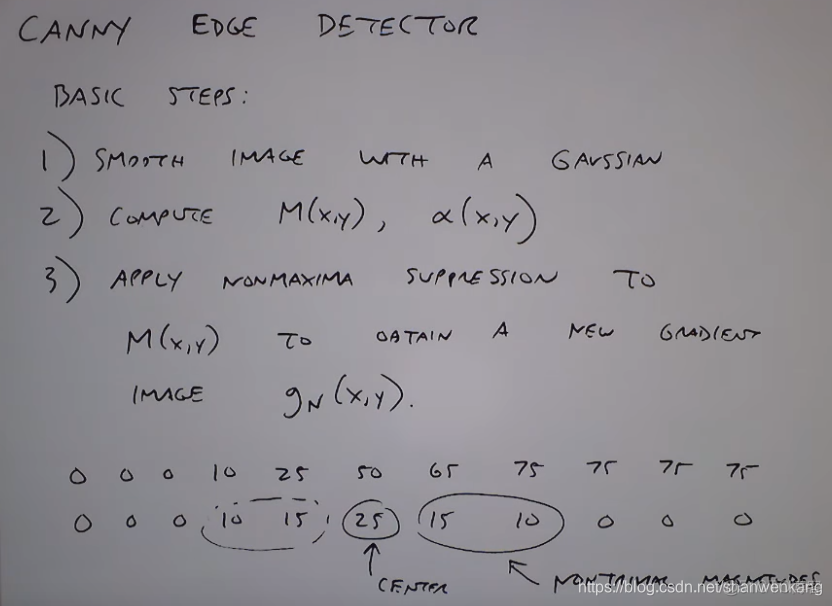 CANNY EDGE DETECTOR
BASIC STEPS:
1) SMOOTH IMAGE WITH A GAUSSIAN
2) COMPUTE M(x,y), α(x,y)
3) APPLY NONMAXIMA SUPPRESSION TO
M(x,y) TO OBTAIN A NEW GRADIENT
IMAGE gN(x,y).
0 0 0 10 25 50 65 75 75 75 75
0 0 0 10 15 25 15 10 0 0 0
CENTER
MAGNITUDES
https://blog.csdn.net/shanwenkang